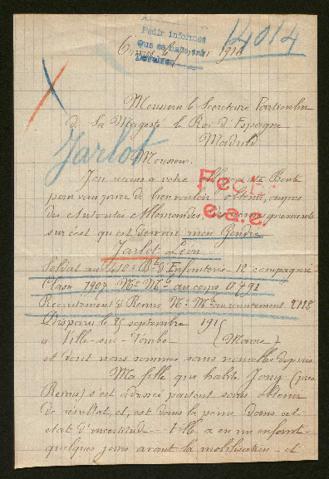 Pedir informes
que se
14014
191
Monsieur le Secrétaire Particulier
de Sa Majesté le Roi d'Espagne
Madrid
Jarlot
Monsieur
J'ai recours à votre Bonté
pour vous prier de bien vouloir obtenir, auprès
des Autorités Allemandes, des renseignements
sur ce qu'est devenu mon Gendre
Pedir
Jarlot Léon
Soldat au d'Infanterie 12e compagnie
Classe 1907 Mle au corps
Recrutement de Reims No Mle au recrutement 2118
Disparu le 25 septembre 1915
à Ville-sur-Tourbe (Marne)
et dont nous sommes sans nouvelles depuis
Ma fille que habite (près
Reims) s'est adressé partout sans obtenir
de résultat, et, est dans la peine dans cet
état d'incertitude. Elle a eu un enfant
quelques jours avant la mobilisation et